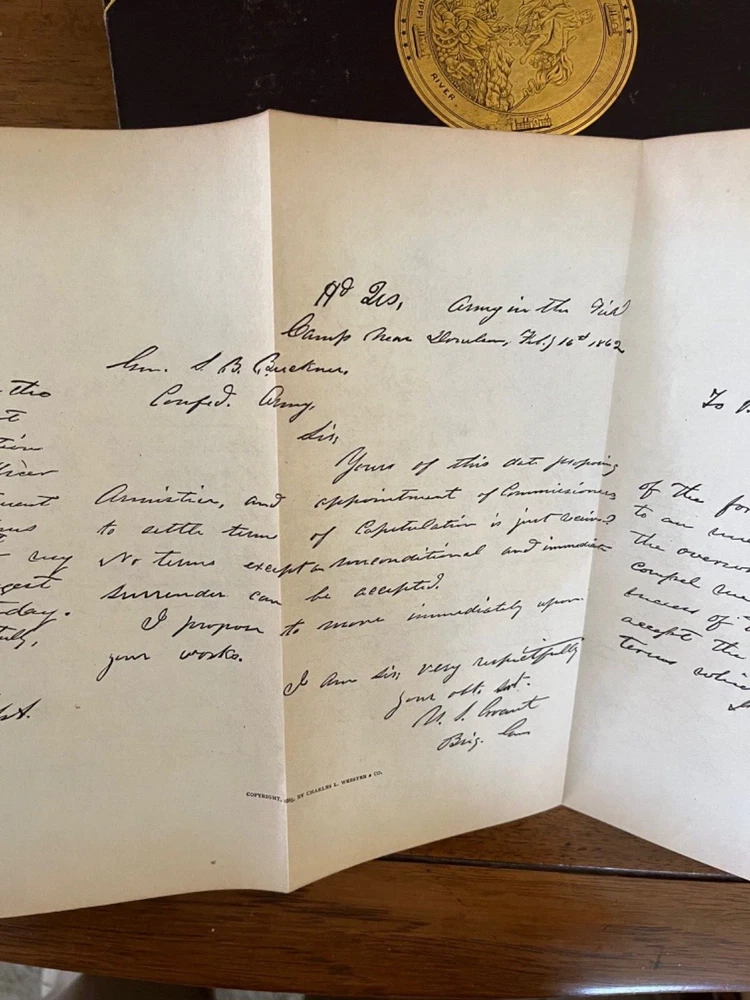 RIVER
Hd Qrs, Army in the Field
Camp Near Donelson, Feby 16th 1862
Gen. S. B. Buckner,
Confed. Army,
Sir;
Yours of this date proposing
Armistice, and appointment of Commissioners
to settle terms of Capitulation is just received.
No terms except an unconditional and immediate
surrender can be accepted.
I propose to move immediately upon
your works.
I am sir; very respectfully
your obt. svt.
U. S. Grant
Brig. Gen
COPYRIGHT, 1885, BY CHARLES L. WEBSTER & CO.
the
tion
ficer
day.
To
of the for
to an
the
compel
success of
accept the
terms which